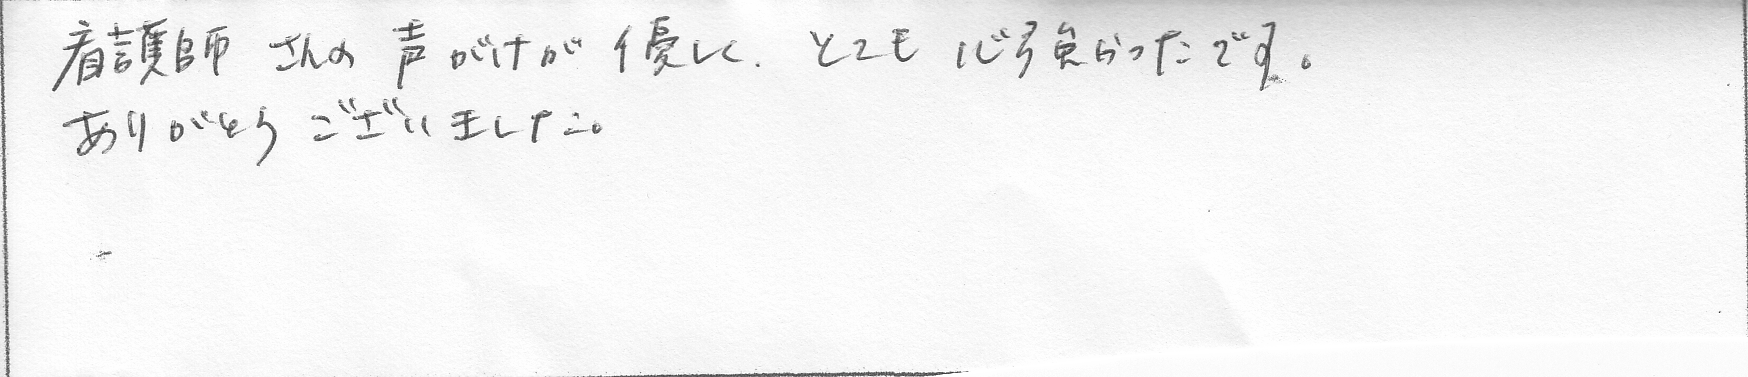 看護師さんの声がけが優しく、とても心強かったです。
ありがとうございました。